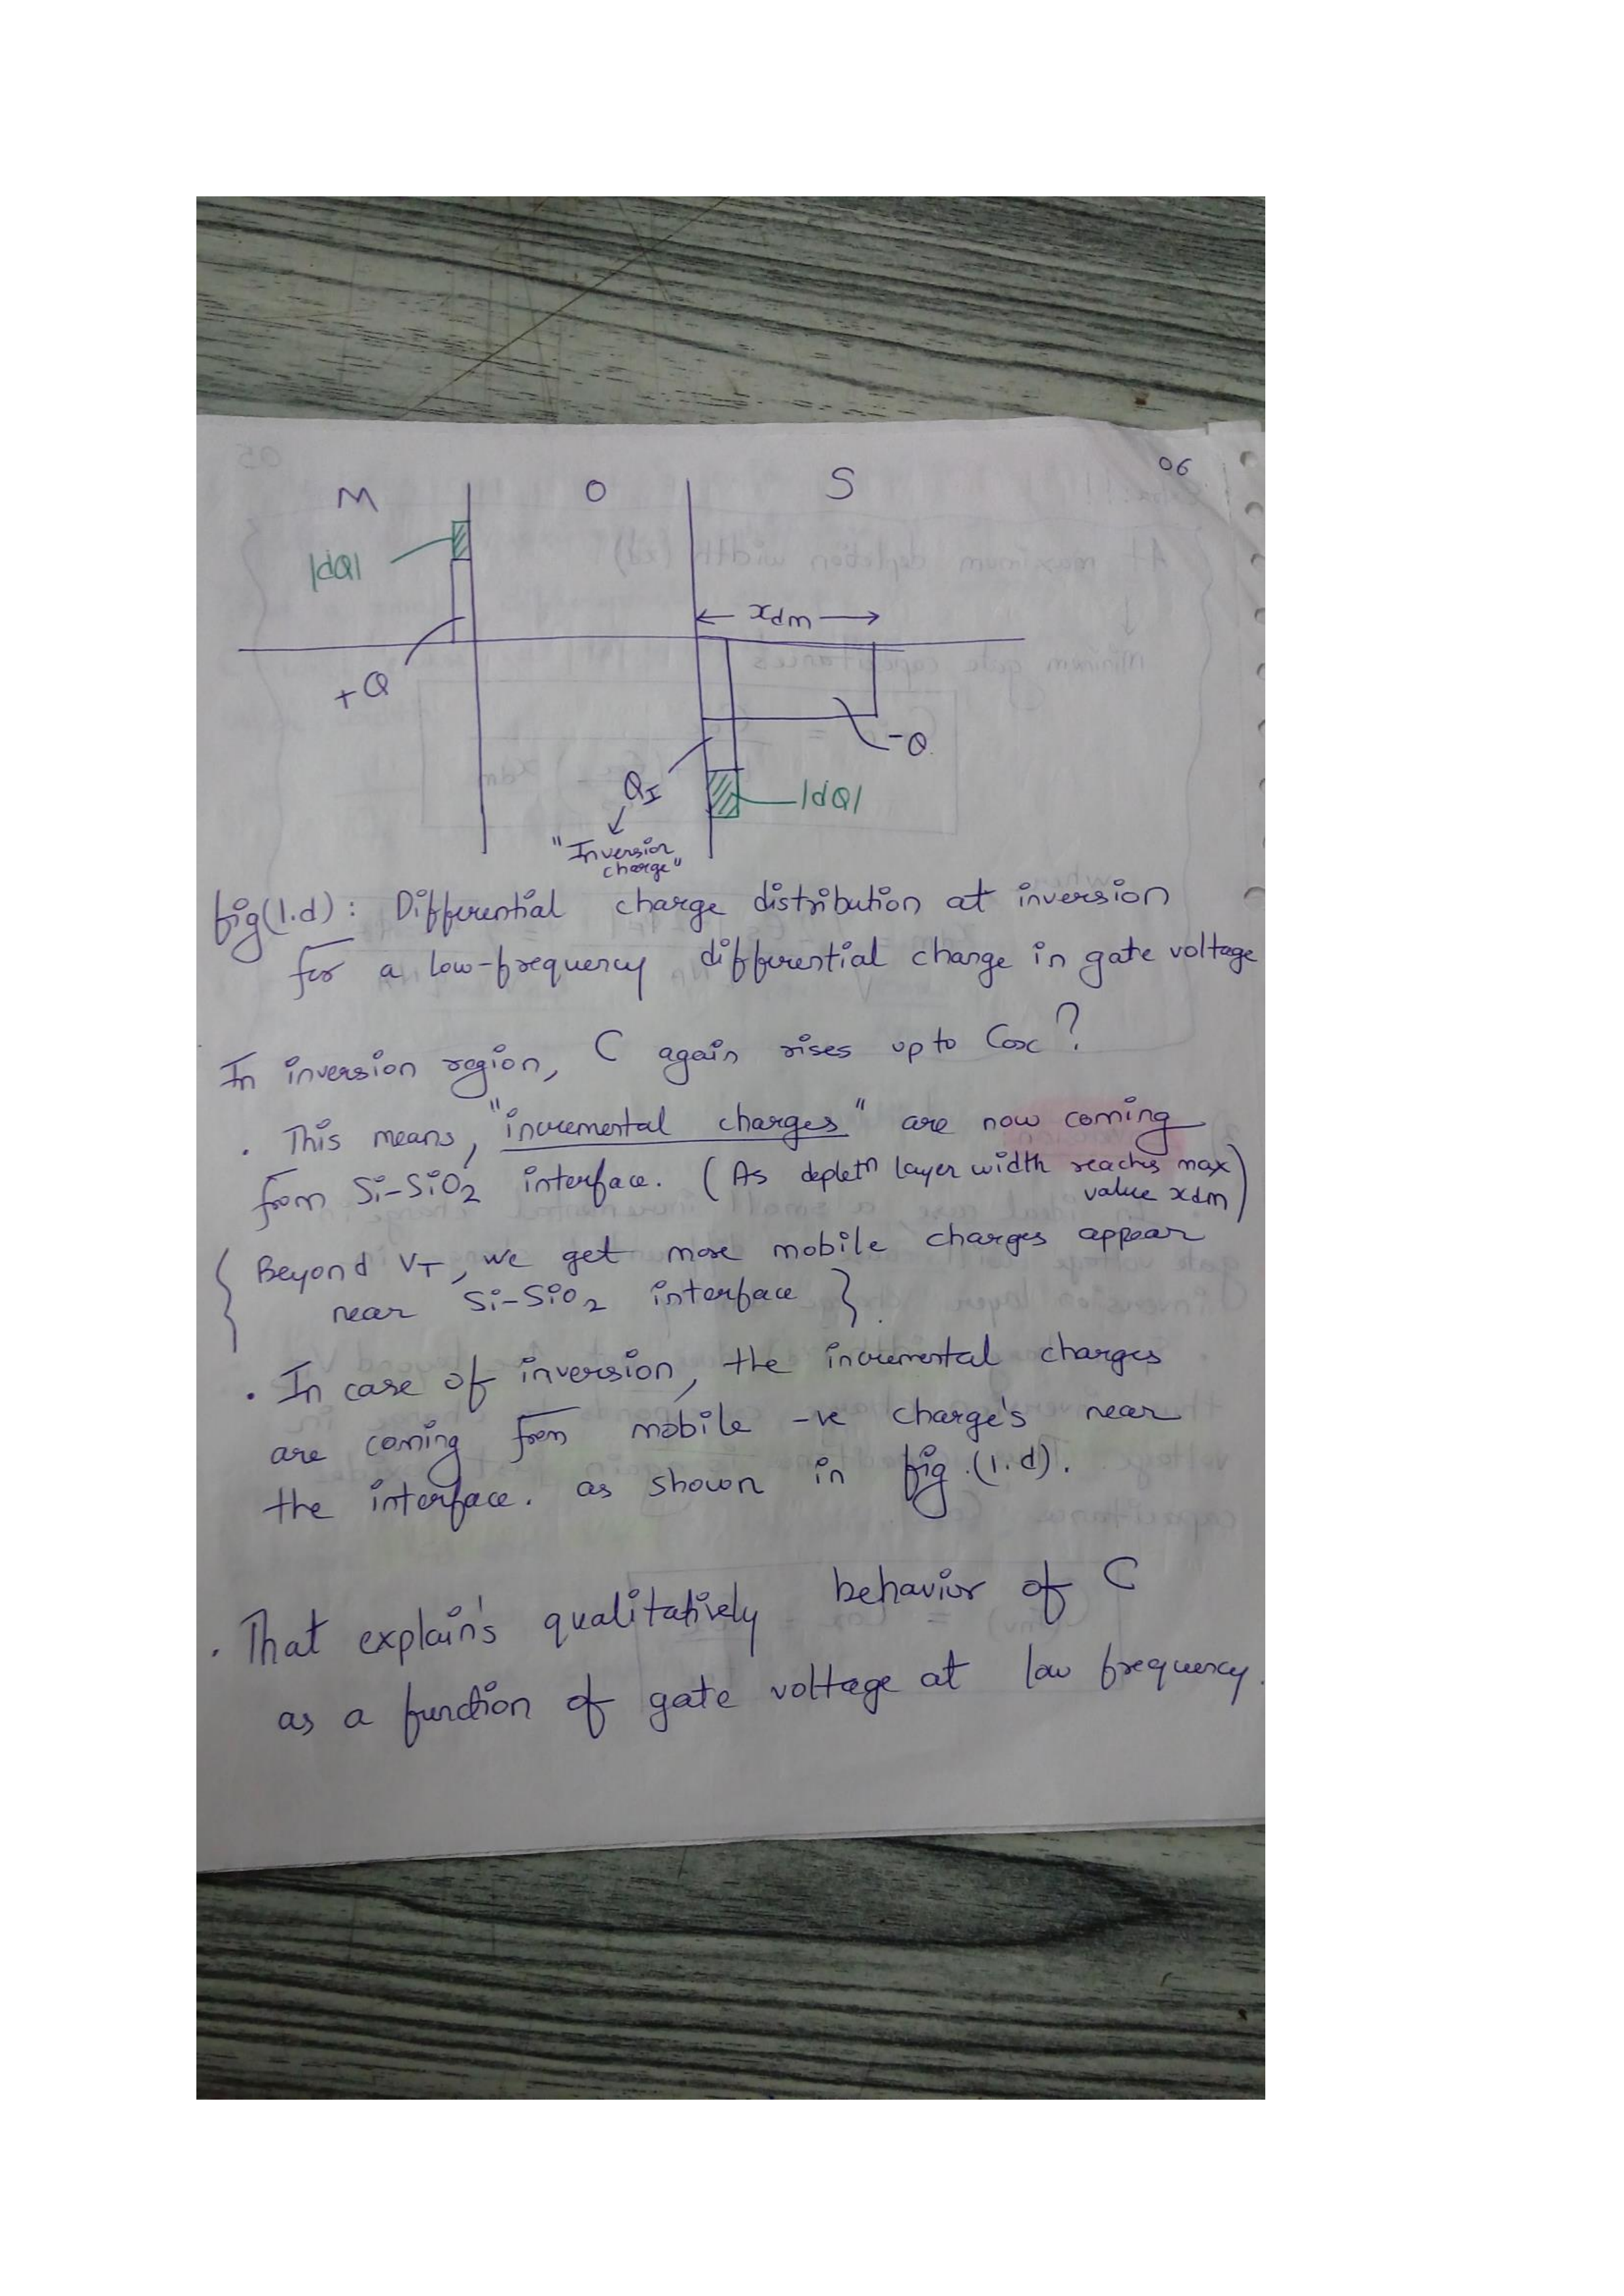 06
M O S
|dQ|
xdm
+Q
-Q
QI
|dQ|
"Inversion
charge"
fig(1.d): Differential charge distribution at inversion
for a low-frequency differential change in gate voltage
In inversion region, C again rises up to Cox?
. This means, "incremental charges" are now coming
from Si-SiO2 interface. (As depletn layer width reaches max
value xdm)
{ Beyond VT, we get more mobile charges appear
near Si-SiO2 interface }.
. In case of inversion, the incremental charges
are coming from mobile -ve charge's near
the interface. as shown in fig.(1.d).
. That explain's qualitatively behavior of C
as a function of gate voltage at low frequency.